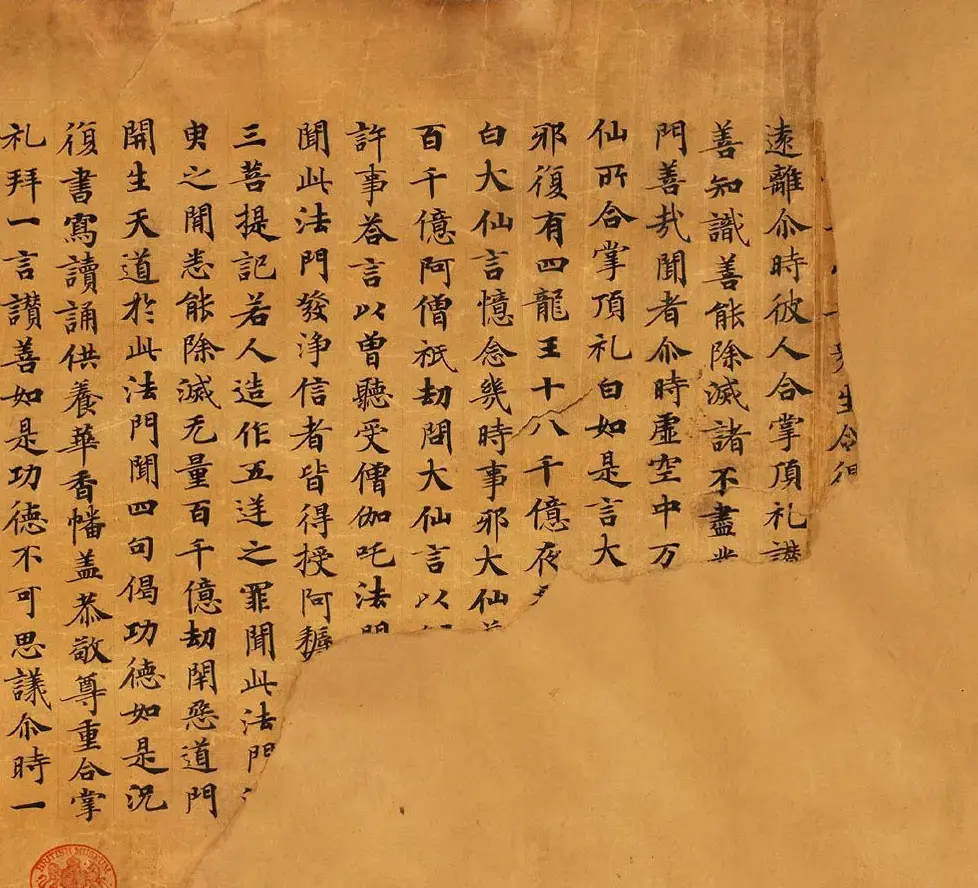 生令得
遠離尒時彼人合掌頂礼讃
善知識善能除滅諸不盡
門善哉聞者尒時虛空中万
仙所合掌頂礼白如是言大
邪復有四龍王十八千億夜
白大仙言憶念幾時事邪大仙
百千億阿僧祇劫問大仙言以
許事荅言以曾聽受僧伽吒法門
聞此法門發浄信者皆得授阿耨
三菩提記若人造作五逆之罪聞此法門
臾之閒悉能除滅无量百千億劫閇惡道門
開生天道於此法門聞四句偈功德如是況
復書寫讀誦供養華香幡盖恭敬尊重合掌
礼拜一言讃善如是功德不可思議尒時一
BRITISH MUSEUM